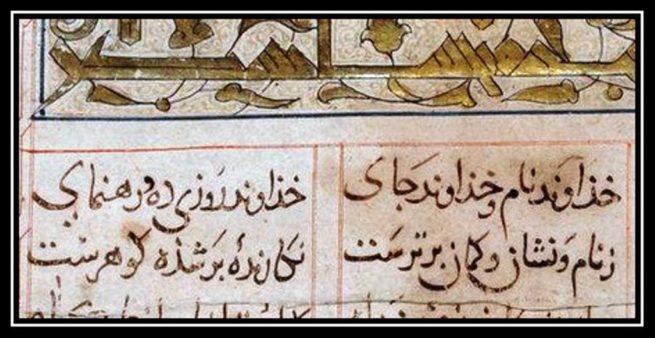 خذاوند نام و خذاوند جای خذاوند روزی ده و رهنمای
زنام و نشان و کمان برترست نکارندهٔ برشذه کوهرست